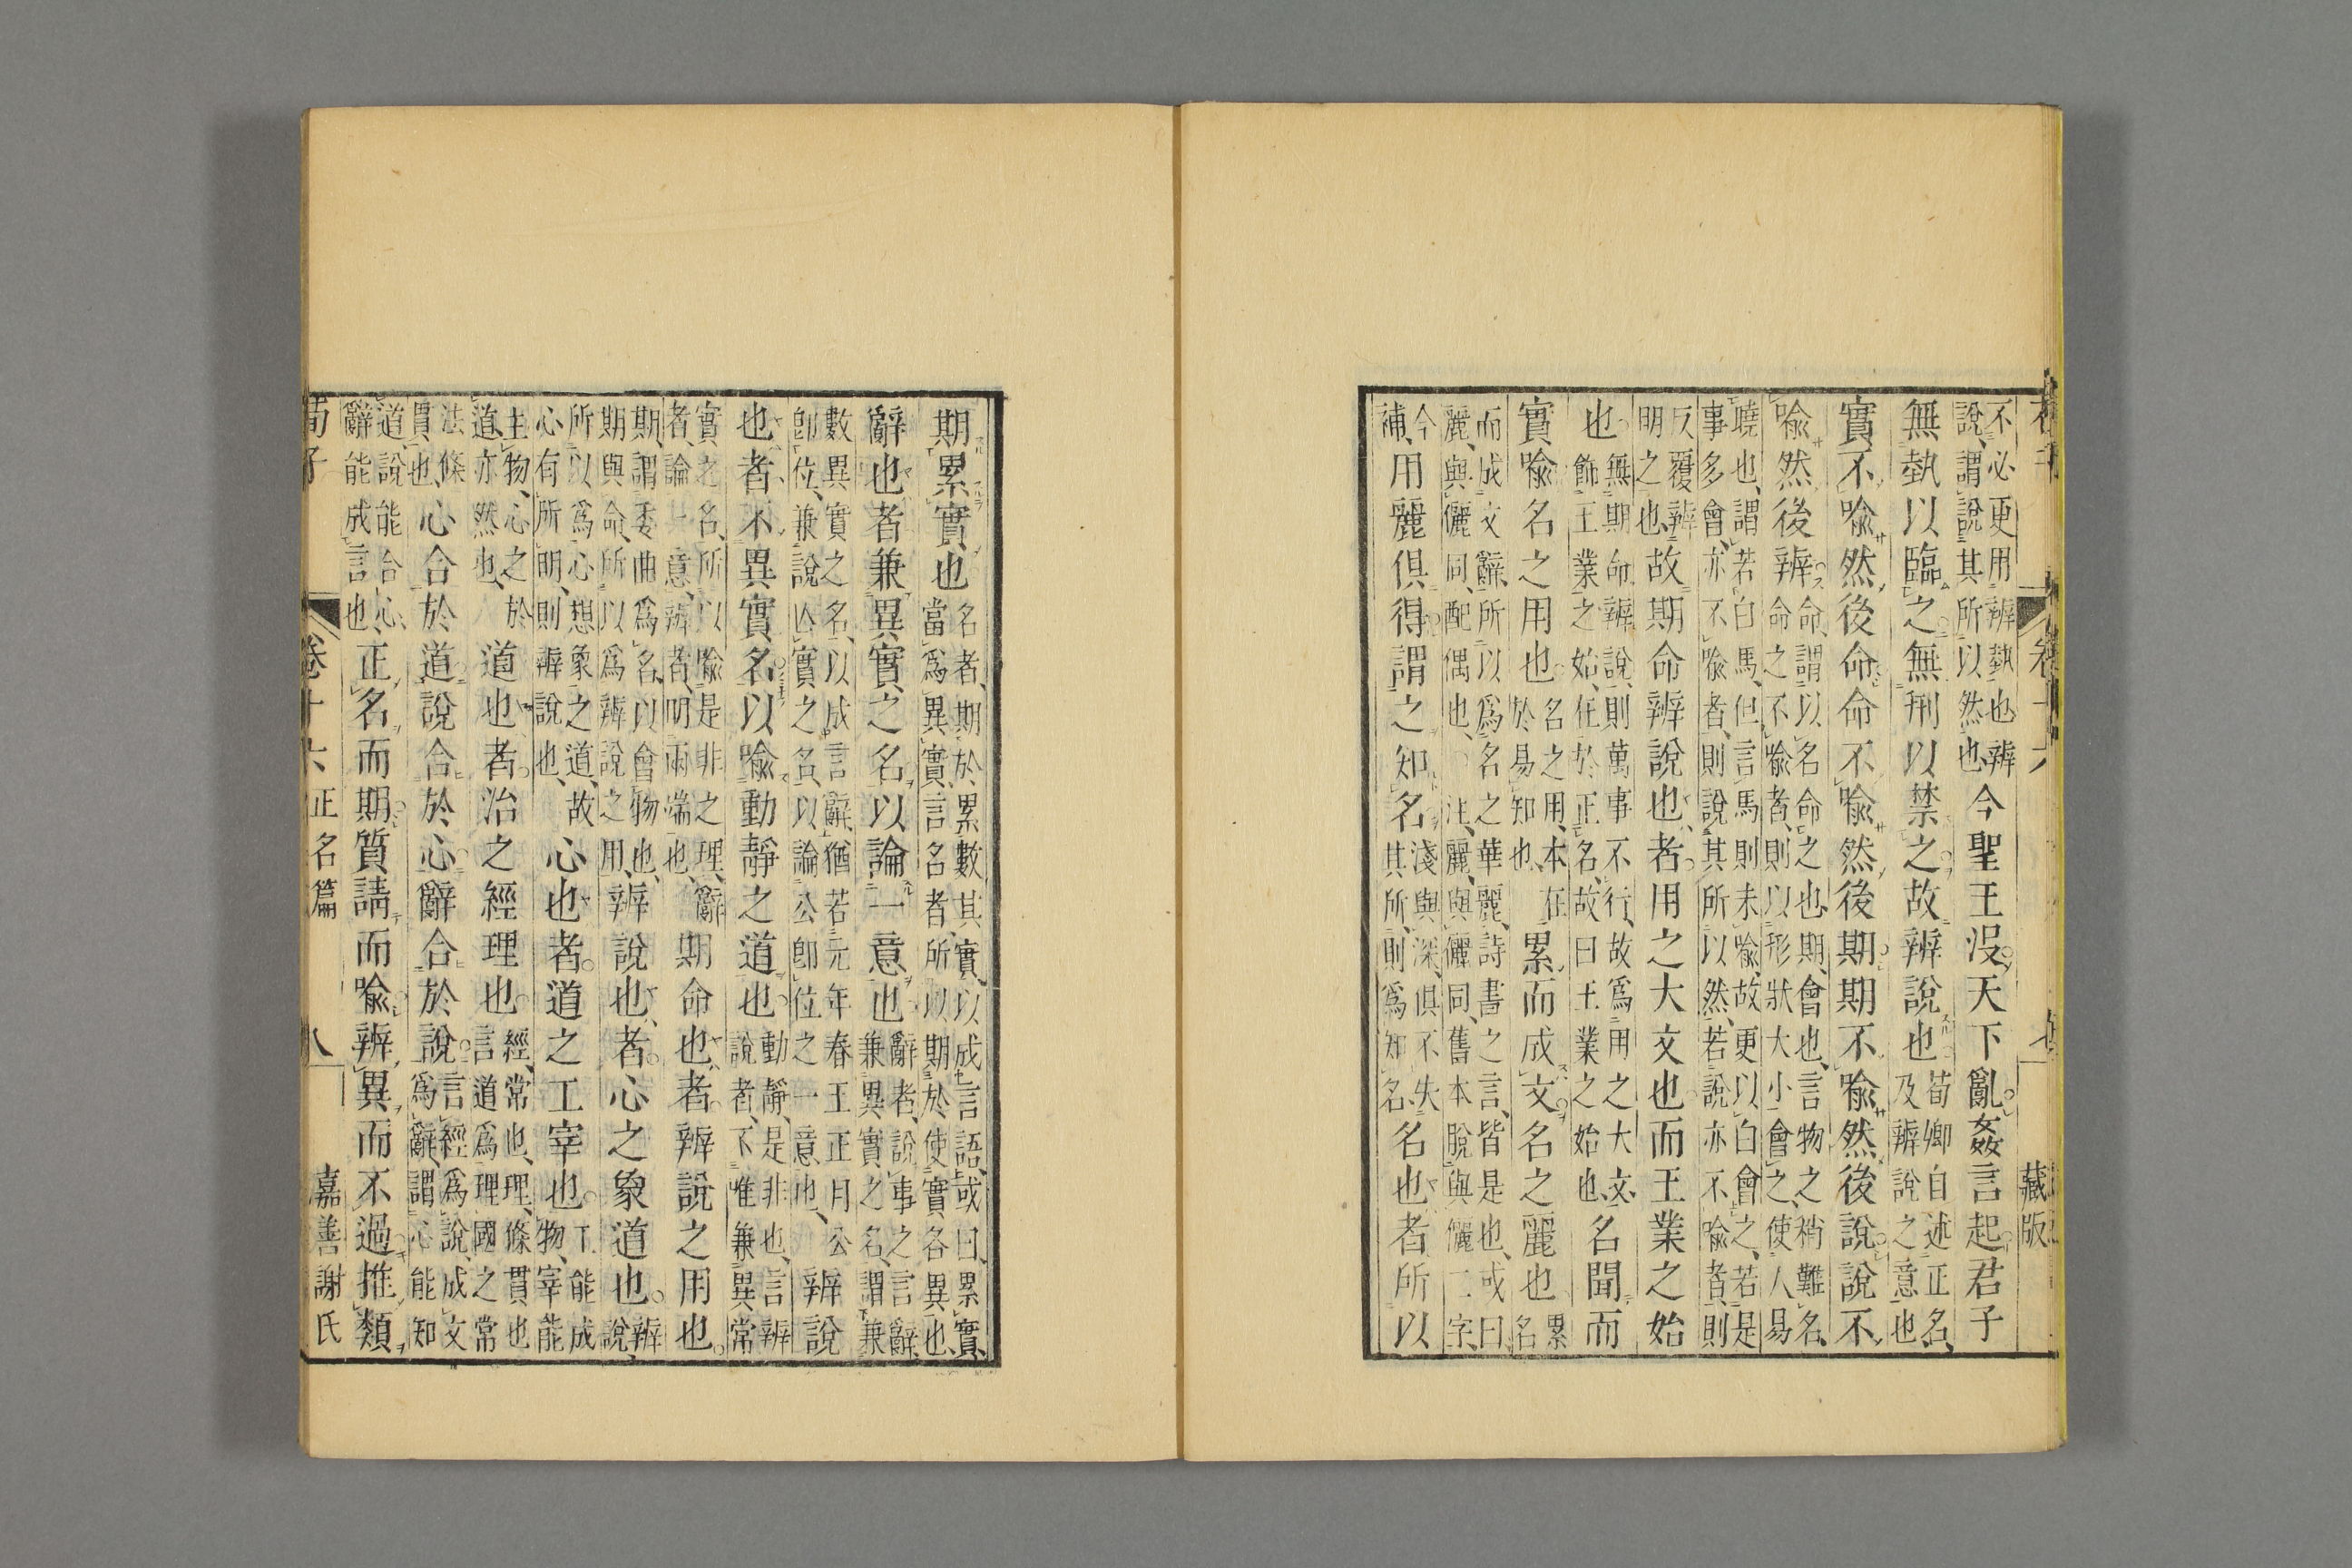 荀子 卷十六 七 藏版
不必更用辨埶也辨
說、謂說其所以然也、今聖王没天下亂姦言起君子
無埶以臨之無刑以禁之故辨說也荀卿自述正名、
及辨說之意也
實不喩然後命命不喩然後期期不喩然後說說不
喩然後辨命、謂以名命之也、期、會也、言物之稍難名、
命之不喩者、則以形狀大小會之、使人易
曉也、謂若白馬、但言馬則未喩、故更以白會之、若是
事多會、亦不喩者、則說其所以然、若說亦不喩者、則
反覆辨
明之也、故期命辨說也者用之大文也而王業之始
也無期命辨說、則萬事不行、故爲用之大文、
飾王業之始、在於正名、故曰王業之始也、名聞而
實喩名之用也名之用、本在
於易知也、累而成文名之麗也累
名
而成文辭、所以爲名之華麗、詩書之言、皆是也、或曰、
麗、與儷同、配偶也、○注、麗、與儷同、舊本脫與儷二字、
今
補、用麗俱得謂之知名淺與深、俱不失
其所、則爲知名、名也者所以
期累實也名者、期於累數其實、以成言語、或曰、累實、
當爲異實、言名者、所以期於使實各異也、
辭也者兼異實之名以論一意也辭者、說事之言辭、
兼異實之名、謂兼
數異實之名、以成言辭、猶若元年春王正月公
卽位、兼說亾實之名、以論公卽位之一意也、辨說
也者不異實名以喩動靜之道也動靜、是非也、言辨
說者、不唯兼異常
實之名、所以喩是非之理、辭
者、論一意、辨者、明兩端也、期命也者辨說之用也
期、謂委曲爲名、以會物也、
期與命、所以爲辨說之用、辨說也者心之象道也辨
說、
所以爲心想象之道、故
心有所明、則辨說也、心也者道之工宰也工能成
物、宰能
主物、心之於
道、亦然也、道也者治之經理也經、常也、理、條貫也
言道爲理國之常
法條
貫也、心合於道說合於心辭合於說言經爲說、成文
爲辭、謂心能知
道、說能合心、
辭能成言也、正名而期質請而喩辨異而不過推類
荀子 卷十六 正名篇 八 嘉善謝氏